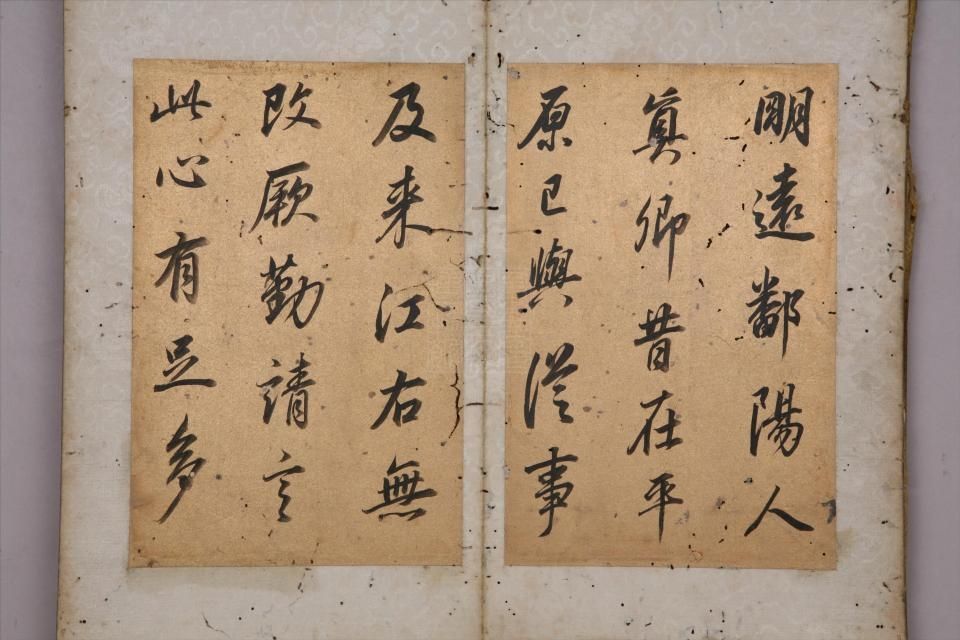 明遠鄱陽人
真卿昔在平
原已與從事
及来江右無
改厥勤請言
此心有足多